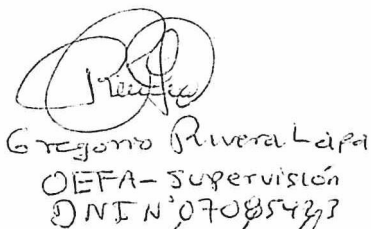 Gregorio Rivera Lapa
OEFA - Supervisión
DNI N°